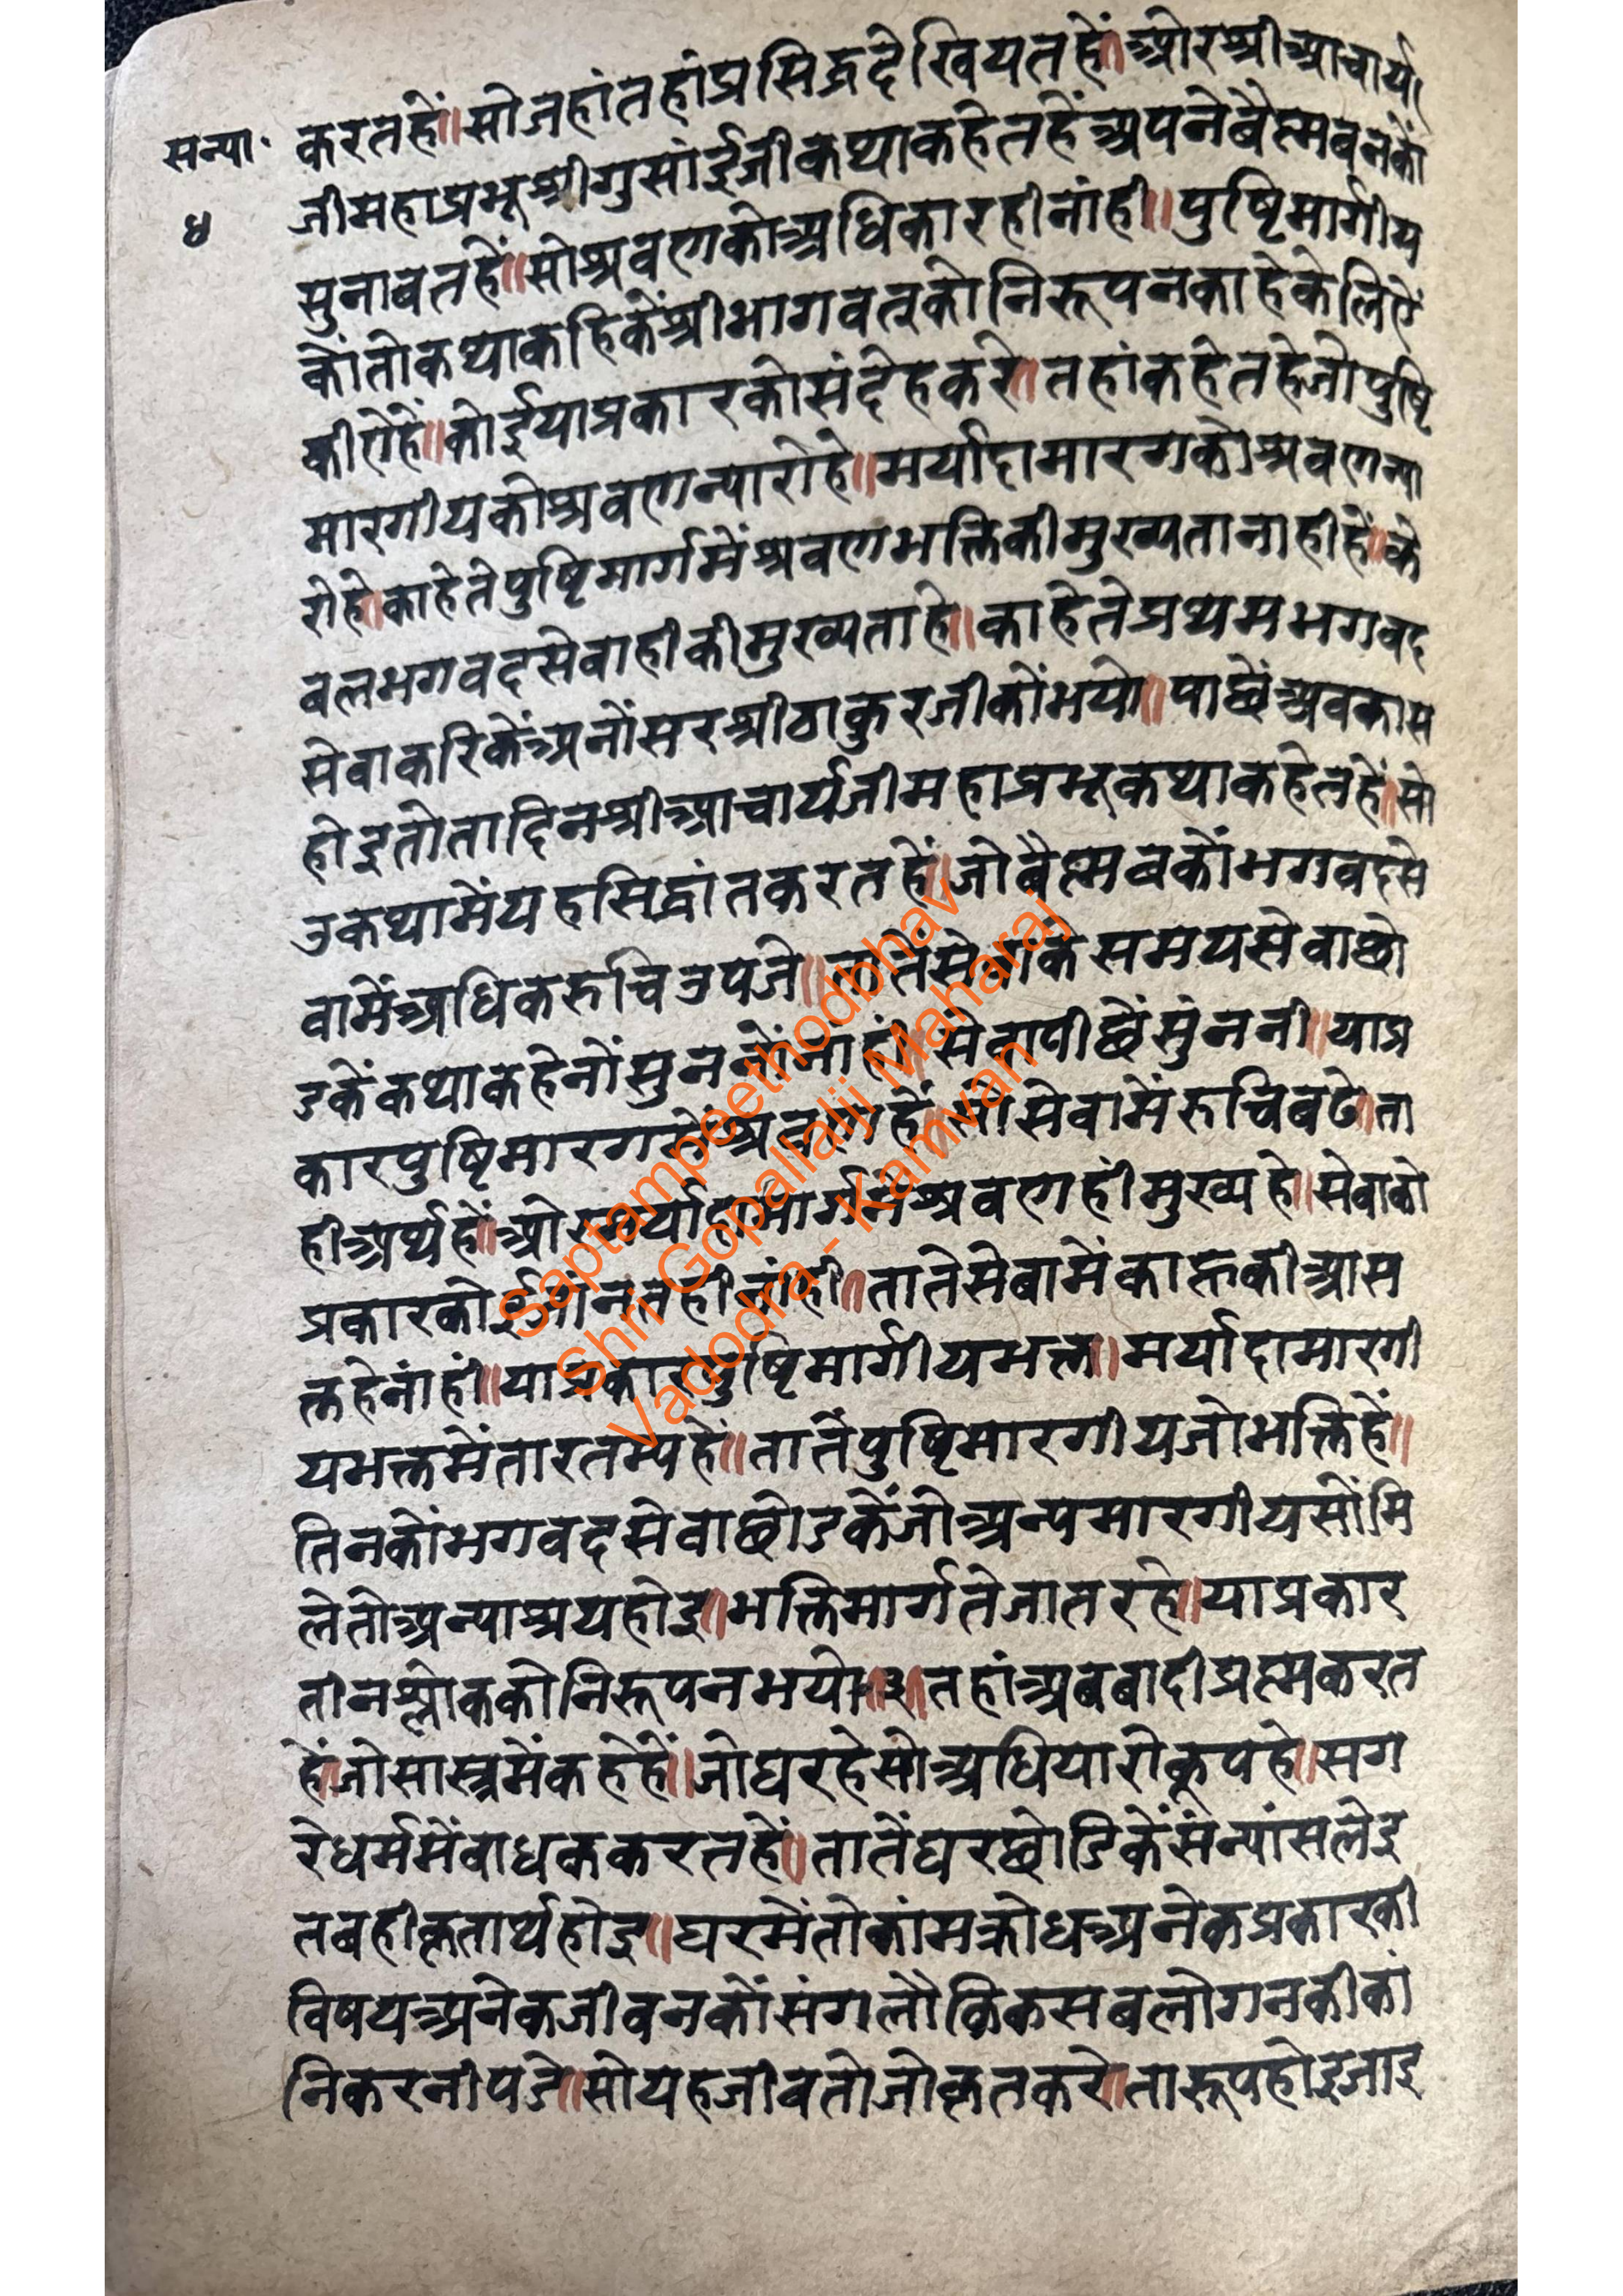 सन्या॰
४
करतहें॥सोजहांतहांप्रसिद्धदेखियतहें।ओरश्रीआचार्य
जीमहाप्रभूश्रीगुसांईजीकथाकहेतहेंअपनेवैष्णवनकों
सुनावतहें॥सोश्रवणकोअधिकारहीनांही॥पुष्टिमार्गीय
कोंतोकथाकहिकेंश्रीभागवत्कोनिरूपनकाहेकेलिऐं
कीऐहें॥कोईयाप्रकारकोसंदेहकरे।तहांकहेतहेजोपुष्टि
मारगीयकोश्रवणन्यारोहे॥मर्यादामारगकोश्रवणन्या
रोहे।काहेतेपुष्टिमार्गमेंश्रवणभक्तिकीमुख्यतानाहीहें।के
वलभगवदसेवाहीकीमुख्यताहे॥काहेतेप्रथमभगवद
सेवाकरिकेंअनोंसरश्रीठाकुरजीकोंभयो॥पाछेंअवकास
होइतोतादिनश्रीआचार्यजीमहाप्रभूकथाकहेतहें।सो
उकथामेंयहसिद्धांतकरतहें॥जोवैष्णवकोंभगवदसे
वामेंअधिकरुचिउपजे॥तातेंसेवाकेसमयसेवाछो
डकेंकथाकहेनोंसुननोंनांहीं॥सेवापीछेंसुंननी॥याप्र
कारपुष्टिमारगकोश्रवणहें॥सोसेवामेंरुचिबढे।ता
हीअर्थहें॥ओरमर्यादामार्गमेश्रवणहींमुख्यहे॥सेवाको
प्रकारकोईजांनतहीनांही॥तातेसेवामेंकाहूकीआस
क्तहेनांहीं॥याप्रकारपुष्टिमार्गीयभक्त॥मर्यादामारगी
यभक्तमेंतारतम्यहें॥तातेंपुष्टिमारगीयजोभक्तिहें॥
तिनकोंभगवदसेवाछोडकेंजोअन्यमारगीयसोंमि
लेतोअन्याश्रयहोइ॥भक्तिमार्गतेजातरहे॥याप्रकार
तीनश्लोककोनिरूपनभयो॥३॥तहांअबबादीप्रष्णकरत
हें।जोसास्त्रमेंकहेहें॥जोघरहेसोअधियारोकुपहे॥सग
रेधर्ममेंबाधककरतहें॥तातेंघरछोडिकेंसंन्यांसलेइ
तबहीकृतार्थहोइ॥घरमेंतोकांमक्रोधअनेकप्रकारकी
विषयअनेकजीवनकोंसंगलौकिकसबलोगनकीकां
निकरनीपडे॥सोयहजीवतोजोकृतकरे।तारूपहोइजाइ
Saptampeethodbhav
Shri Gopallalji Maharaj
Vadodra - Kamvan